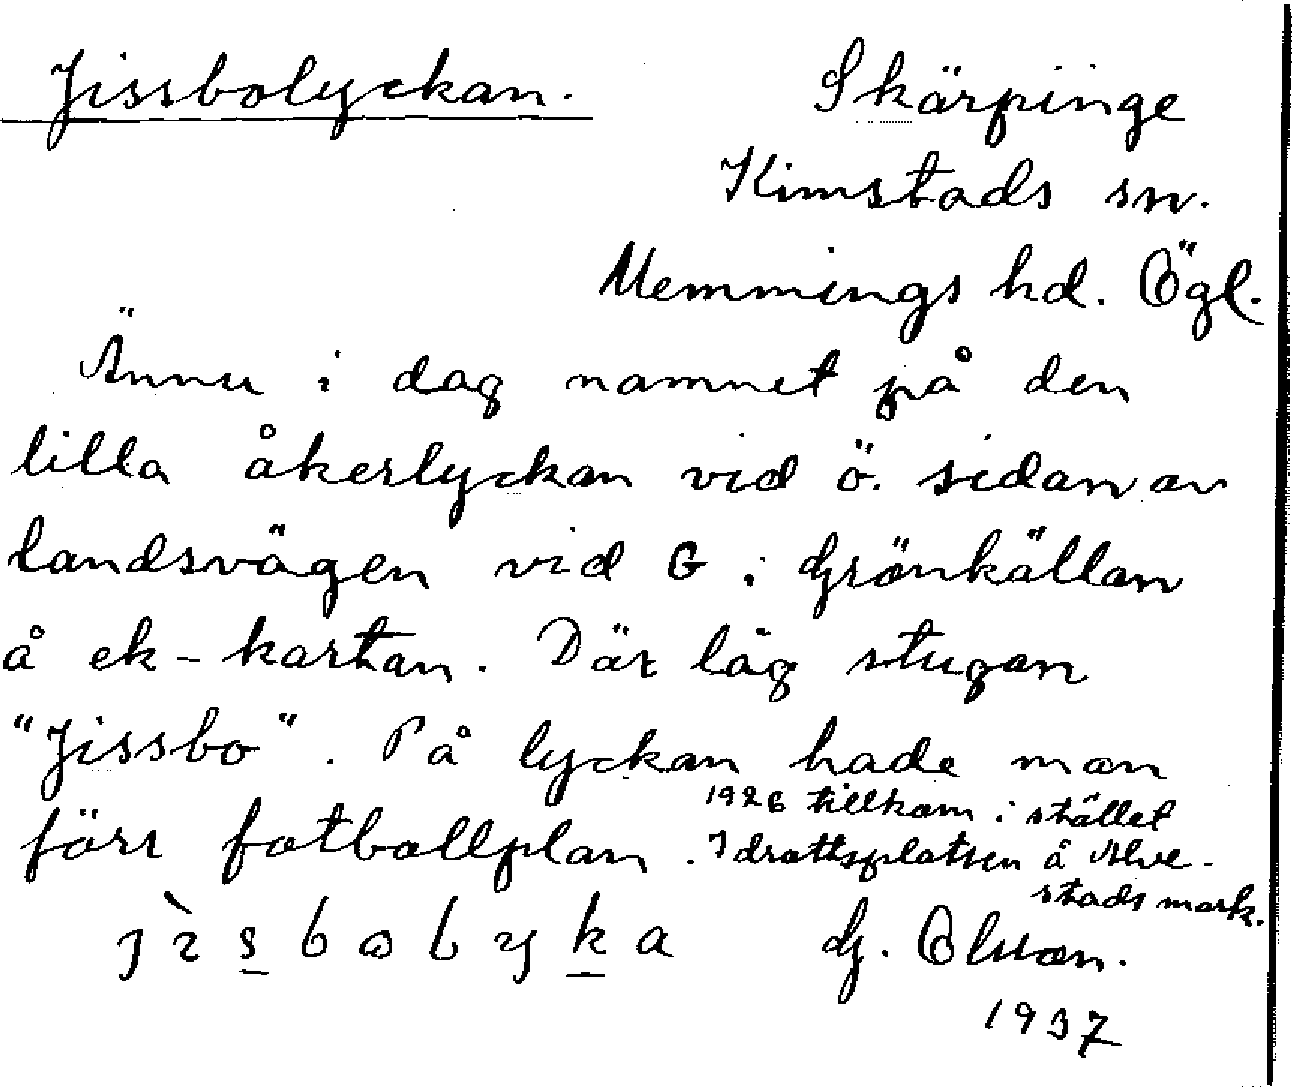 Jissbolyckan.
Skärpinge
Kimstads sn.
Memmings hd. Ögl.
Ännu i dag namnet på den
lilla åkerlyckan vid ö. sidan av
landsvägen vid G i Grönkällan
å ek-kartan. Där låg stugan
"Jissbo". På lyckan hade man
förr fotbollplan. 1926 tillkom i stället
Idrottsplatsen å Alve-
stads mark.
G. Olson.
1937